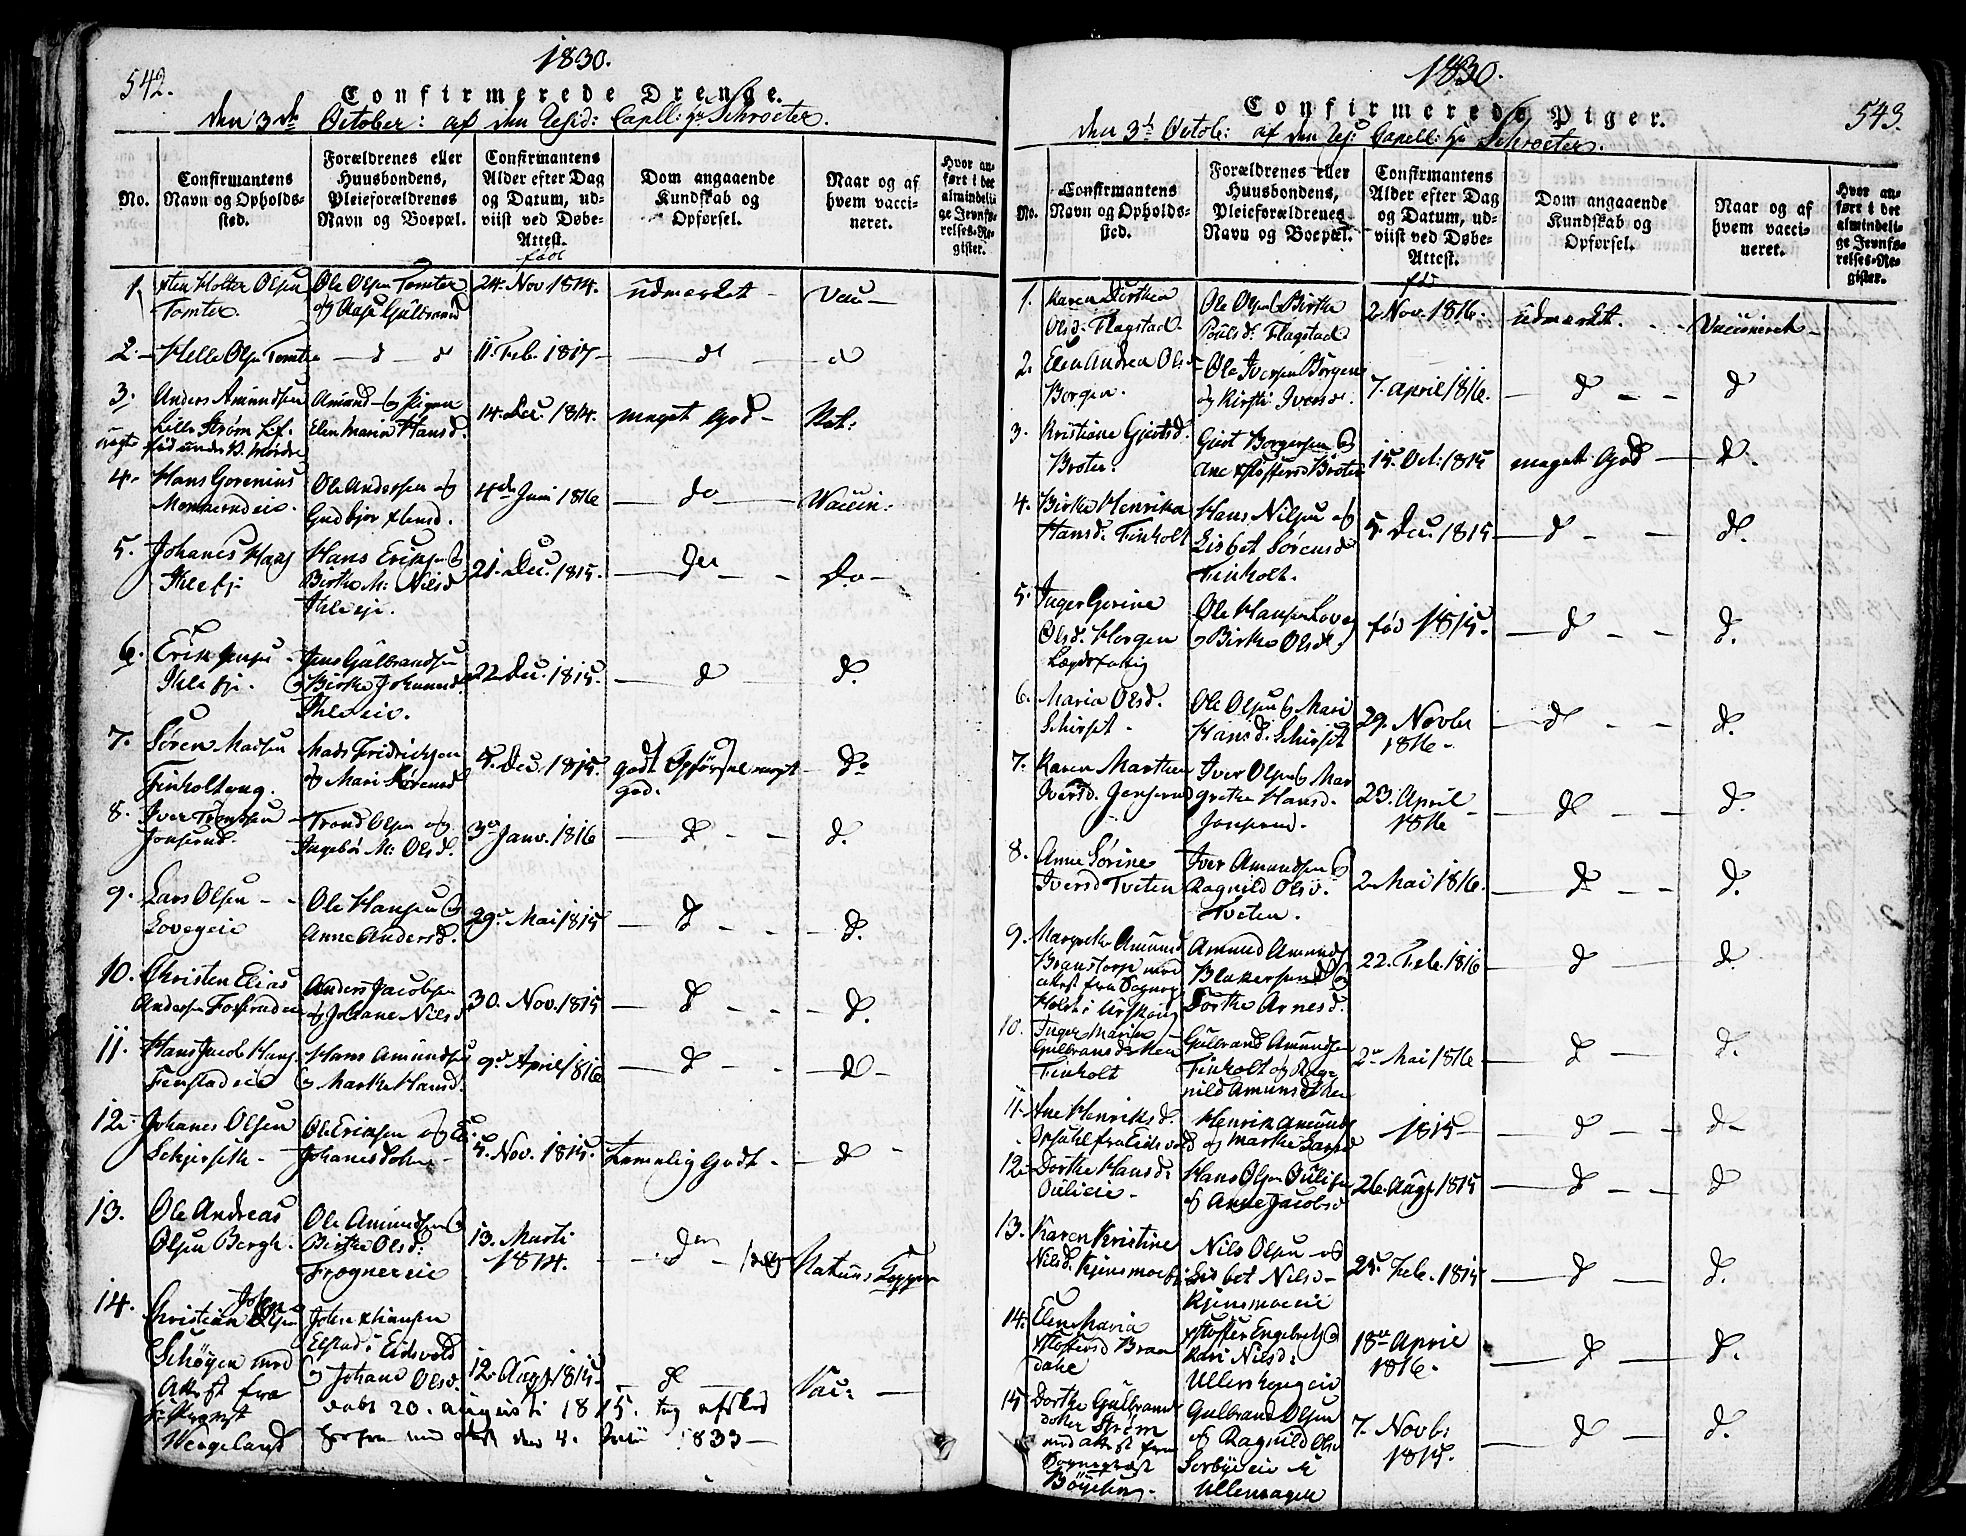 1830.
542.
Confirmerede Drenge.
den 3de October: af den Resid: Capell: Hr Schroeter.
No.
Confirmantens Navn og Opholds-sted.
Forældrenes eller Huusbondens, Pleieforældrenes Navn og Boepæl.
Confirmantens Alder efter Dag og Datum, ud-viist ved Døbe-Attest.
Dom angaaende Kundskab og Opførsel.
Naar og af hvem vacci-neret.
Hvor an-ført i det almindeli-ge Jevnfø-relses-Re-gister.
født
1. Holter Olsen Tomter. Ole Olsen Tomter og Aase Gulbrand 24. Nov 1814. udmerket Vac
2. Helle Olsen Tomte d d 11 Feb. 1817 d d
3. Anders Amundsen Lille Strøm Amund og Pigen Elen Maria Hansd. 14. Dec. 1814. meget God Nat:
4. Hans Gorenius Ole Andersen og Gudbjør 4de Juni 1816 do Vaccin:
5. Johanes Hans Ihleej: Hans Eriksen og Birthe M: Nilsd Ihleeje. 21. Dec. 1815. do Do
6. Erik Jensen Ihleeje. Jens Gulbrandsen og Birthe Johannesd Ihleeie. 22. Dec. 1815. d d.
7. Søren Madsen Finholteng. Mads Fridrichsen og Mari Sørensd 5. Dec. 1815. godt Opførsel megt god. do
8. Iver Tronssen Jonsrud. Trond Olsen og Ingebor M: Olsd. 3de Janv. 1816 d d.
9. Lars Olsen Lovegeie Ole Hansen og Anne Andersd. 29de Mai 1815 d d.
10. Christen Elias Andersen Anders Jacobsen og Johane Nilsd 30. Nov. 1815 d d.
11. Hans Jacob Hans. Fenstadeie Hans Amundsen og Marthe Hansd. 9de April 1816 d d
12. Johanes Olsen Schjerseth Ole Eriksen og Johanesd 5. Nov. 1815. temmelig Godt d
13. Ole Andreas Olsen Bergh. Ole Amundsen og Birthe Olsd. Frognereie 13. Marti 1814. d Naturs Kopper
14. Christian John Olsen Schøyen med Attest fra Hr Provst Wergeland John Hansen Elstad i Eidsvold og Johane Olsd. 12. Augt 1815. d Vac:
døbt 20. augusti 1815. tog afsked
herfra med attest den 4. 1833
1830.
543.
Confirmerede Piger.
den 3de Octob: af den Res: Capell: Hr Schroeter.
No.
Confirmantens Navn og Opholds-sted.
Forældrenes eller Huusbondens, Pleieforældrenes Navn og Boepæl.
Confirmantens Alder efter Dag og Datum, ud-viist ved Døbe-Attest.
Dom angaaende Kundskab og Opførsel.
Naar og af hvem vacci-neret.
Hvor an-ført i det almindeli-ge Jevnfø-relses-Re-gister.
1. Karen Dorthea Olsd: Flagstad. Ole Olsen og Birthe Poulsd: Flagstad 2 Nov. 1816. udmerket. Vaccineret
2. Elen Andrea Olsd Borgen. Ole Iversen Borgen og Kirsti Iversd. 7. April 1816. d d
3. Kristiane Gjertsd. Broter. Gjert Borgersen og Ane Broter 15. Oct: 1815 meget God d.
4. Birthe Henrika Hansd. Finholt Hans Nilsen og Lisbet Sørensd Finholt. 5. Dec. 1815 d d.
5. Inger Gorine Olsd. Horgen Lægdsfattig Ole Hansen Love og Birthe Olsd. fød 1815. d d.
6. Maria Olsd. Schirset. Ole Olsen og Mari Hansd. Schirset 29. Novbr 1816 d d.
7. Karen Marthea Iversd. Jonsrud Iver Olsen og Margrethe Hansd. Jonsrud. 23. April 1816 d d.
8. Anne Sørine Iversd Tveten Iver Amundsen og Ragnild Olsd. Tveten. 2 Mai 1816. d d.
9. Margrethe Amund Branstorp med attest fra Sognep Holst i Urskoug Amund Amunds Blakersund og Dorthe Arnesd. 22. Feb. 1816 d d.
10. Inger Maria Gulbransdatter Finholt Gulbrand Amundsen Finholt og Ragnild Amundsdtter 2den Mai 1816 d d.
11. Ane Henriksd. Opsahl fra Eidsvold Henrik Amunds og Marthe Larsd 1815 d d
12. Dorthe Hansd: Oulieie Hans Olsen Oulie og Anne Jacobsd 26. Augt 1815 d d
13. Karen Kristine Nilsd. Kjensmoe Nils Olsen og Lisbet Nilsd Kjensmoeeie 25. Feb. 1815 d d.
14. Elen Maria Braadahl Engebrets og Kari Nilsd: 18de April 1816. d d.
15 Dorthe Gulbrandsdotter Strøm med attest fra Sogneprest Gulbrand Olsen og Ragnild Olsd 7. Novbr 1815. d d.